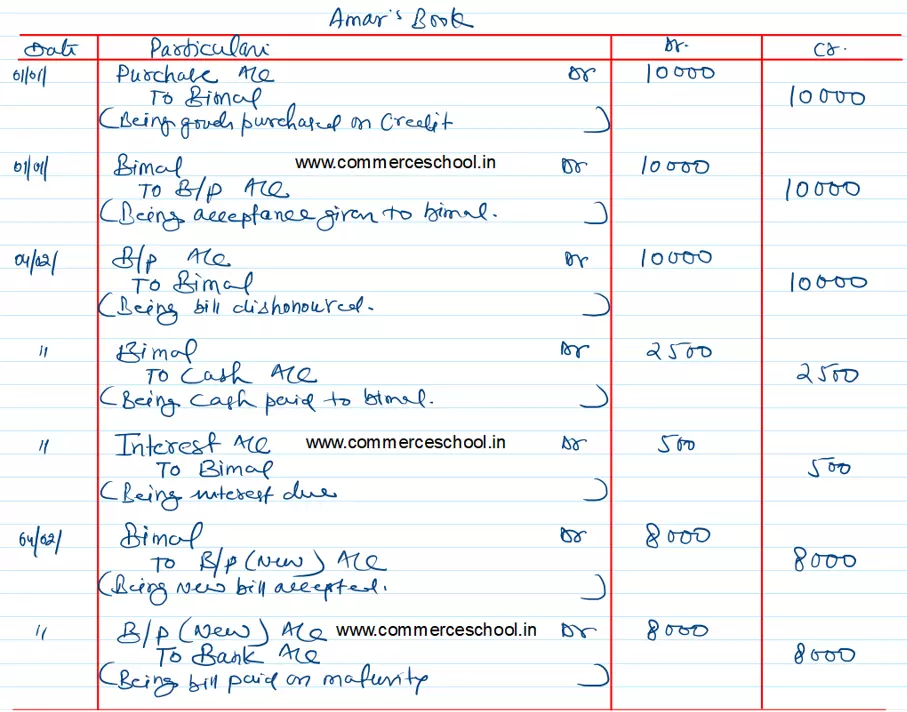 Amar's Book
Date Particulars Dr. Cr.
01/01/ Purchase A/C Dr 10000
To Bimal 10000
(Being goods purchased on Credit)
01/01 Bimal www.commerceschool.in Dr 10000
To B/p A/C 10000
(Being acceptance given to bimal.)
04/02/ B/p A/C Dr 10000
To Bimal 10000
(Being bill dishonoured.)
" Bimal Dr 2500
To Cash A/C 2500
(Being Cash paid to bimal.)
" Interest A/C www.commerceschool.in Dr 500
To Bimal 500
(Being interest due)
04/02/ Bimal Dr 8000
To B/p (New) A/C 8000
(Being New bill accepted.)
" B/p (New) A/C www.commerceschool.in Dr 8000
To Bank A/C 8000
(Being bill paid on maturity)